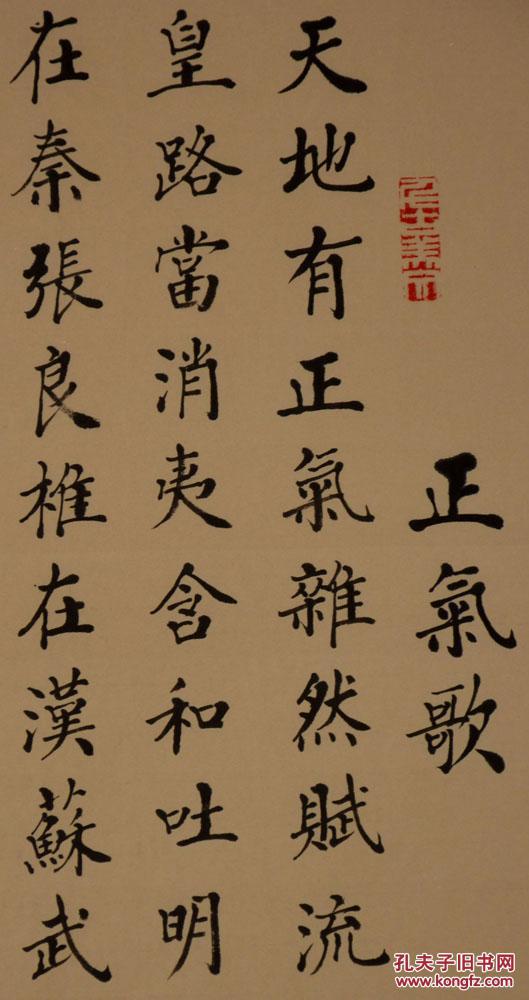 正氣歌
天地有正氣雜然賦流
皇路當消夷含和吐明
在秦張良椎在漢蘇武
孔夫子旧书网
www.kongfz.com